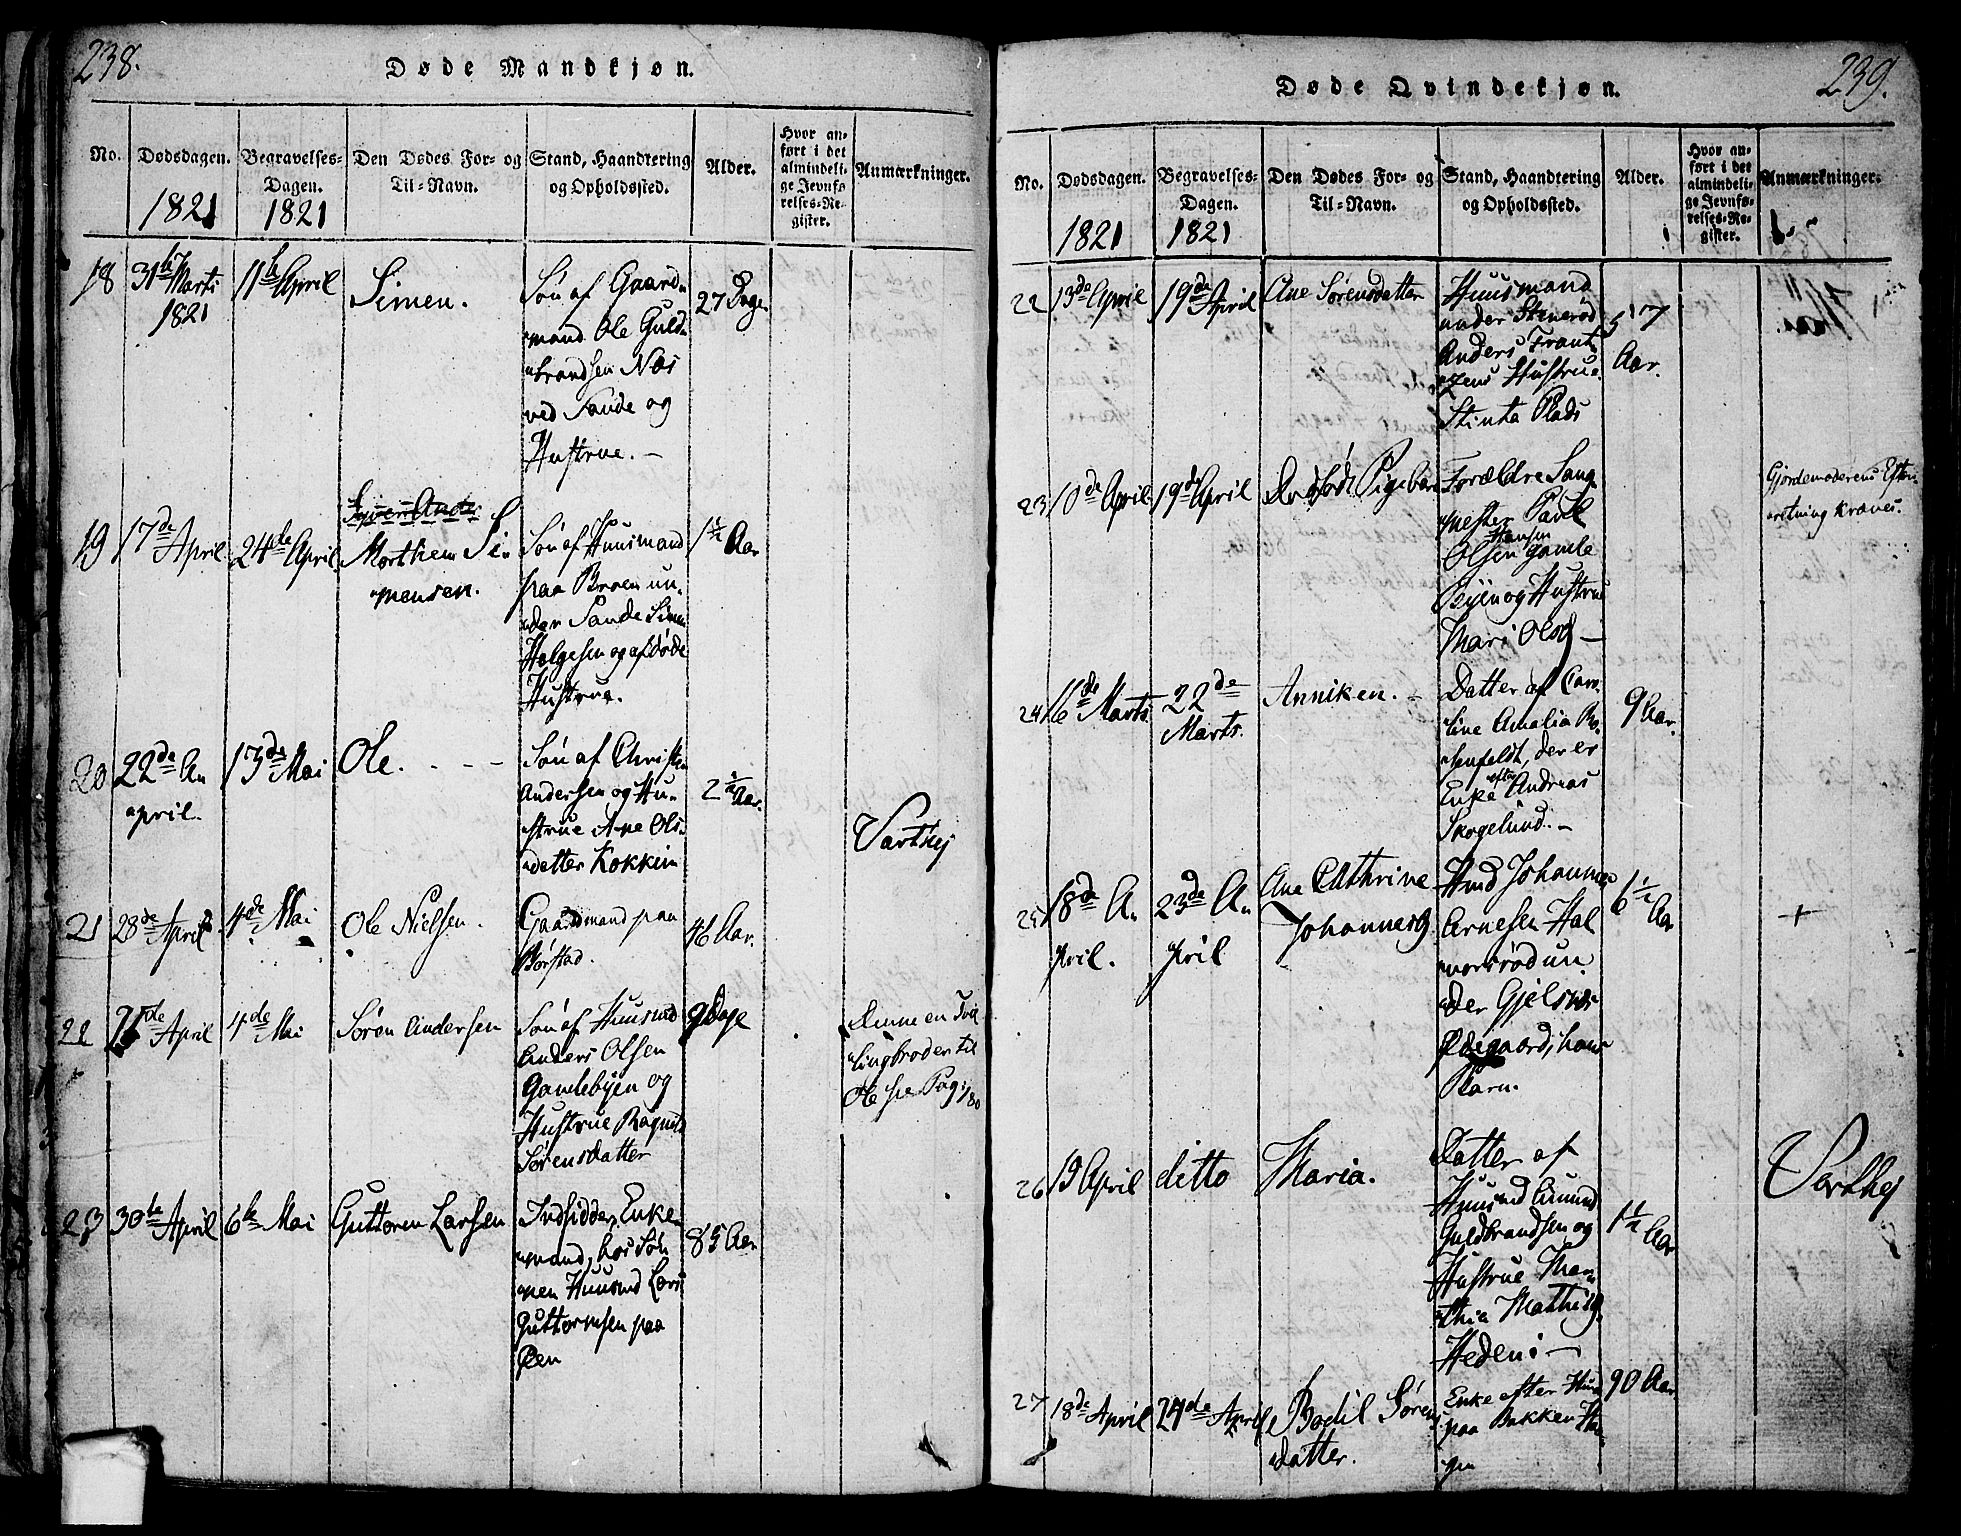 238.
Døde Mandkjøn.
No.
Dødsdagen.
1821
Begravelses-
Dagen.
1821
Den Dødes For- og
Til-Navn.
Stand, Haandtering
og Opholdssted.
Alder.
Hvor an-
ført i det
almindeli-
ge Jevnfø
relses-Re-
gister.
Anmærkninger.
18
31te Marts
1821
11te April
Simen.
Søn af Gaard
mand Ole Guld
brandsen Næs
ved Sande og
Hustrue. –
27 Dage
19
17de April
24de April
Morthen Si
mensen.
Søn af Huusmand
paa Broen un-
der Sande Simen
Helgesen og afdøde
Hustrue.
1½ Aar
20
22de A
april.
13de Mai
Ole.
Søn af Christen
Andersen og Hu-
strue Ane Ols-
datter Kokkim
2½ Aar.
21
28de April
4de Mai
Ole Nielsen.
Gaardmand paa
Børstad.
46 Aar.
22
25de April
4de Mai
Søren Andersen
Søn af Huusmd
Anders Olsen
Gamlebyen og
Hustrue Ragnild
Sørensdatter
9 Dage
Denne en Tvil
lingbroder til
Ole se Pag: 180
23
30te April
6te Mai
Guttorm Larsen
Indsidder, Enke
mand, hos Søn
nen Huusmd Lars
Guttormsen paa
Øen
85 Aar
239.
Døde Qvindekjøn.
No.
Dødsdagen.
1821
Begravelses-
Dagen.
1821
Den Dødes For- og
Til-Navn.
Stand, Haandtering
og Opholdssted.
Alder.
Hvor an-
ført i det
almindeli-
ge Jevnfø-
relses-Re-
gister.
Anmærkninger.
22
13de April
19de April
Ane Sørensdatter
Huusmand
under Stenerød
Anders Frant
zens Hustrue
Stinta Plads
57
Aar.
23
10de April
19de April
Dødfødt Pigebarn
Forældre
Olsen gamle
Hansen
Byen og Hustrue
Mari Olsd –
Gjordemoderens Efter
retning kræves.
24
16de Marts
22de
Marts.
Anniken. –
Datter af Caro
line Amalia Ro
senfeldt, der er
Enke efter Andreas
Skogelund. –
9 Aar.
25
18de A
pril.
23de A
pril
Ane Cathrine
Johannesd
Hmd Johannes
Arnesen Hal
vorsrød un
der Gjelsnæs
Ødegaard, hans
Barn.
6½ Aar
+
26
19 April
ditto
Maria.
Datter af
Huusmd Amund
Guldbrandsen og
Hustrue Mar
thia Mathisd
Heden: –
1½ Aar
27
18de April
24de April
Bodil Sørens
datter.
Enke efter Huusmd
paa Bakken
90 Aar